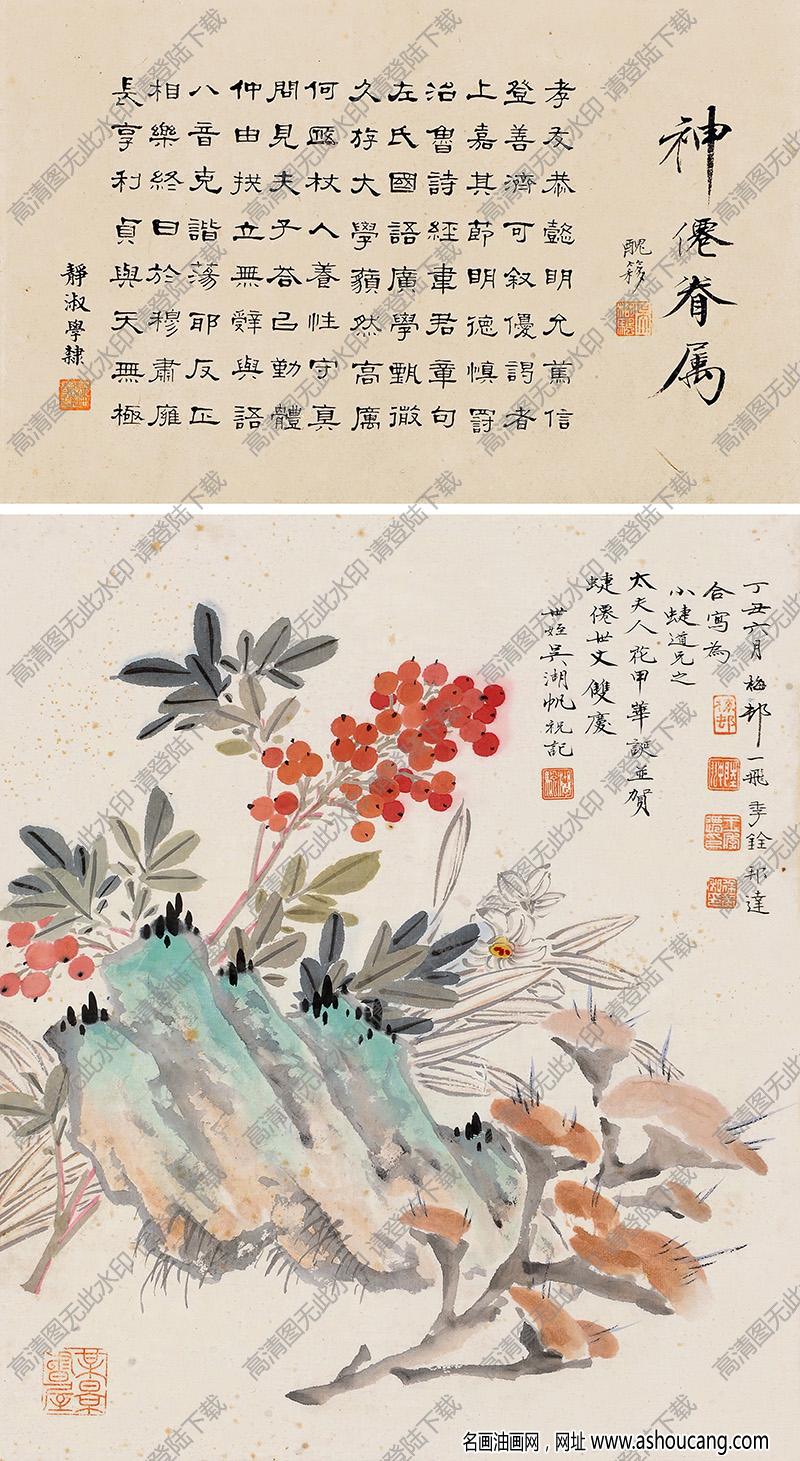 神僊眷属
醜簃
孝友恭懿明允篤信
登善濟可叙優謁者
上嘉其節明德慎罸
治魯詩經韋君章句
左氏國語廣學甄徹
久斿大學藐然高厲
何杖人養性守真
問見夫子荅己勤體
仲由拱立無辤與語
八音克諧蕩耶反正
相樂終日於穆肅雍
長享利貞與天無極
靜淑學隸
丁丑六月梅邨一飛季銓邦達
合寫為
小蜨道兄之
太夫人花甲華誕並賀
蜨僊世丈雙慶
世姪吳湖帆祝記
某景書屋
高清图无此水印 请登陆下载
名画油画网，网址 www.ashoucang.com